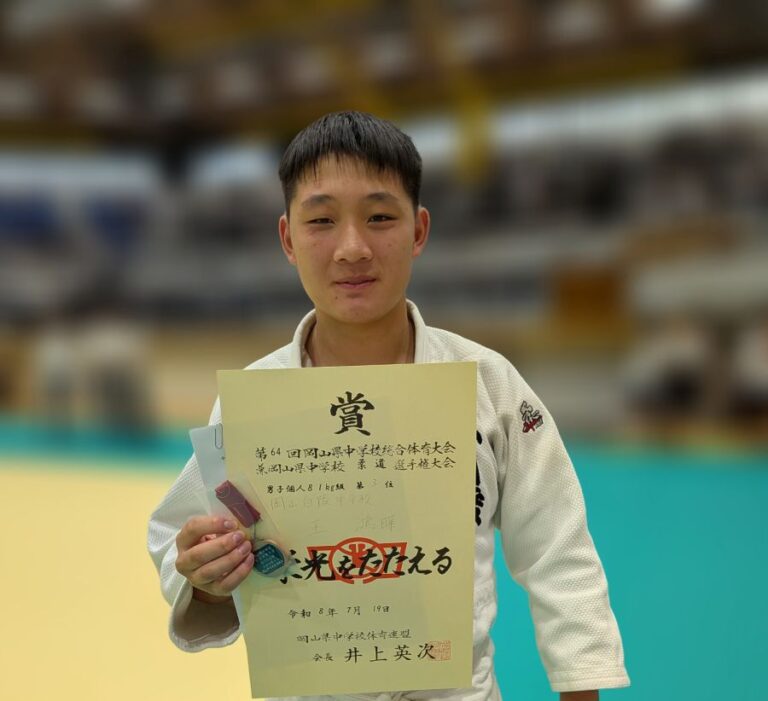 賞
第64回岡山県中学校総合体育大会
兼岡山県中学校 柔道 選手権大会
男子個人81kg級 第三位
岡山白陵中学校
王
栄光をたたえる
令和8年7月19日
岡山県中学校体育連盟
会長 井上英次